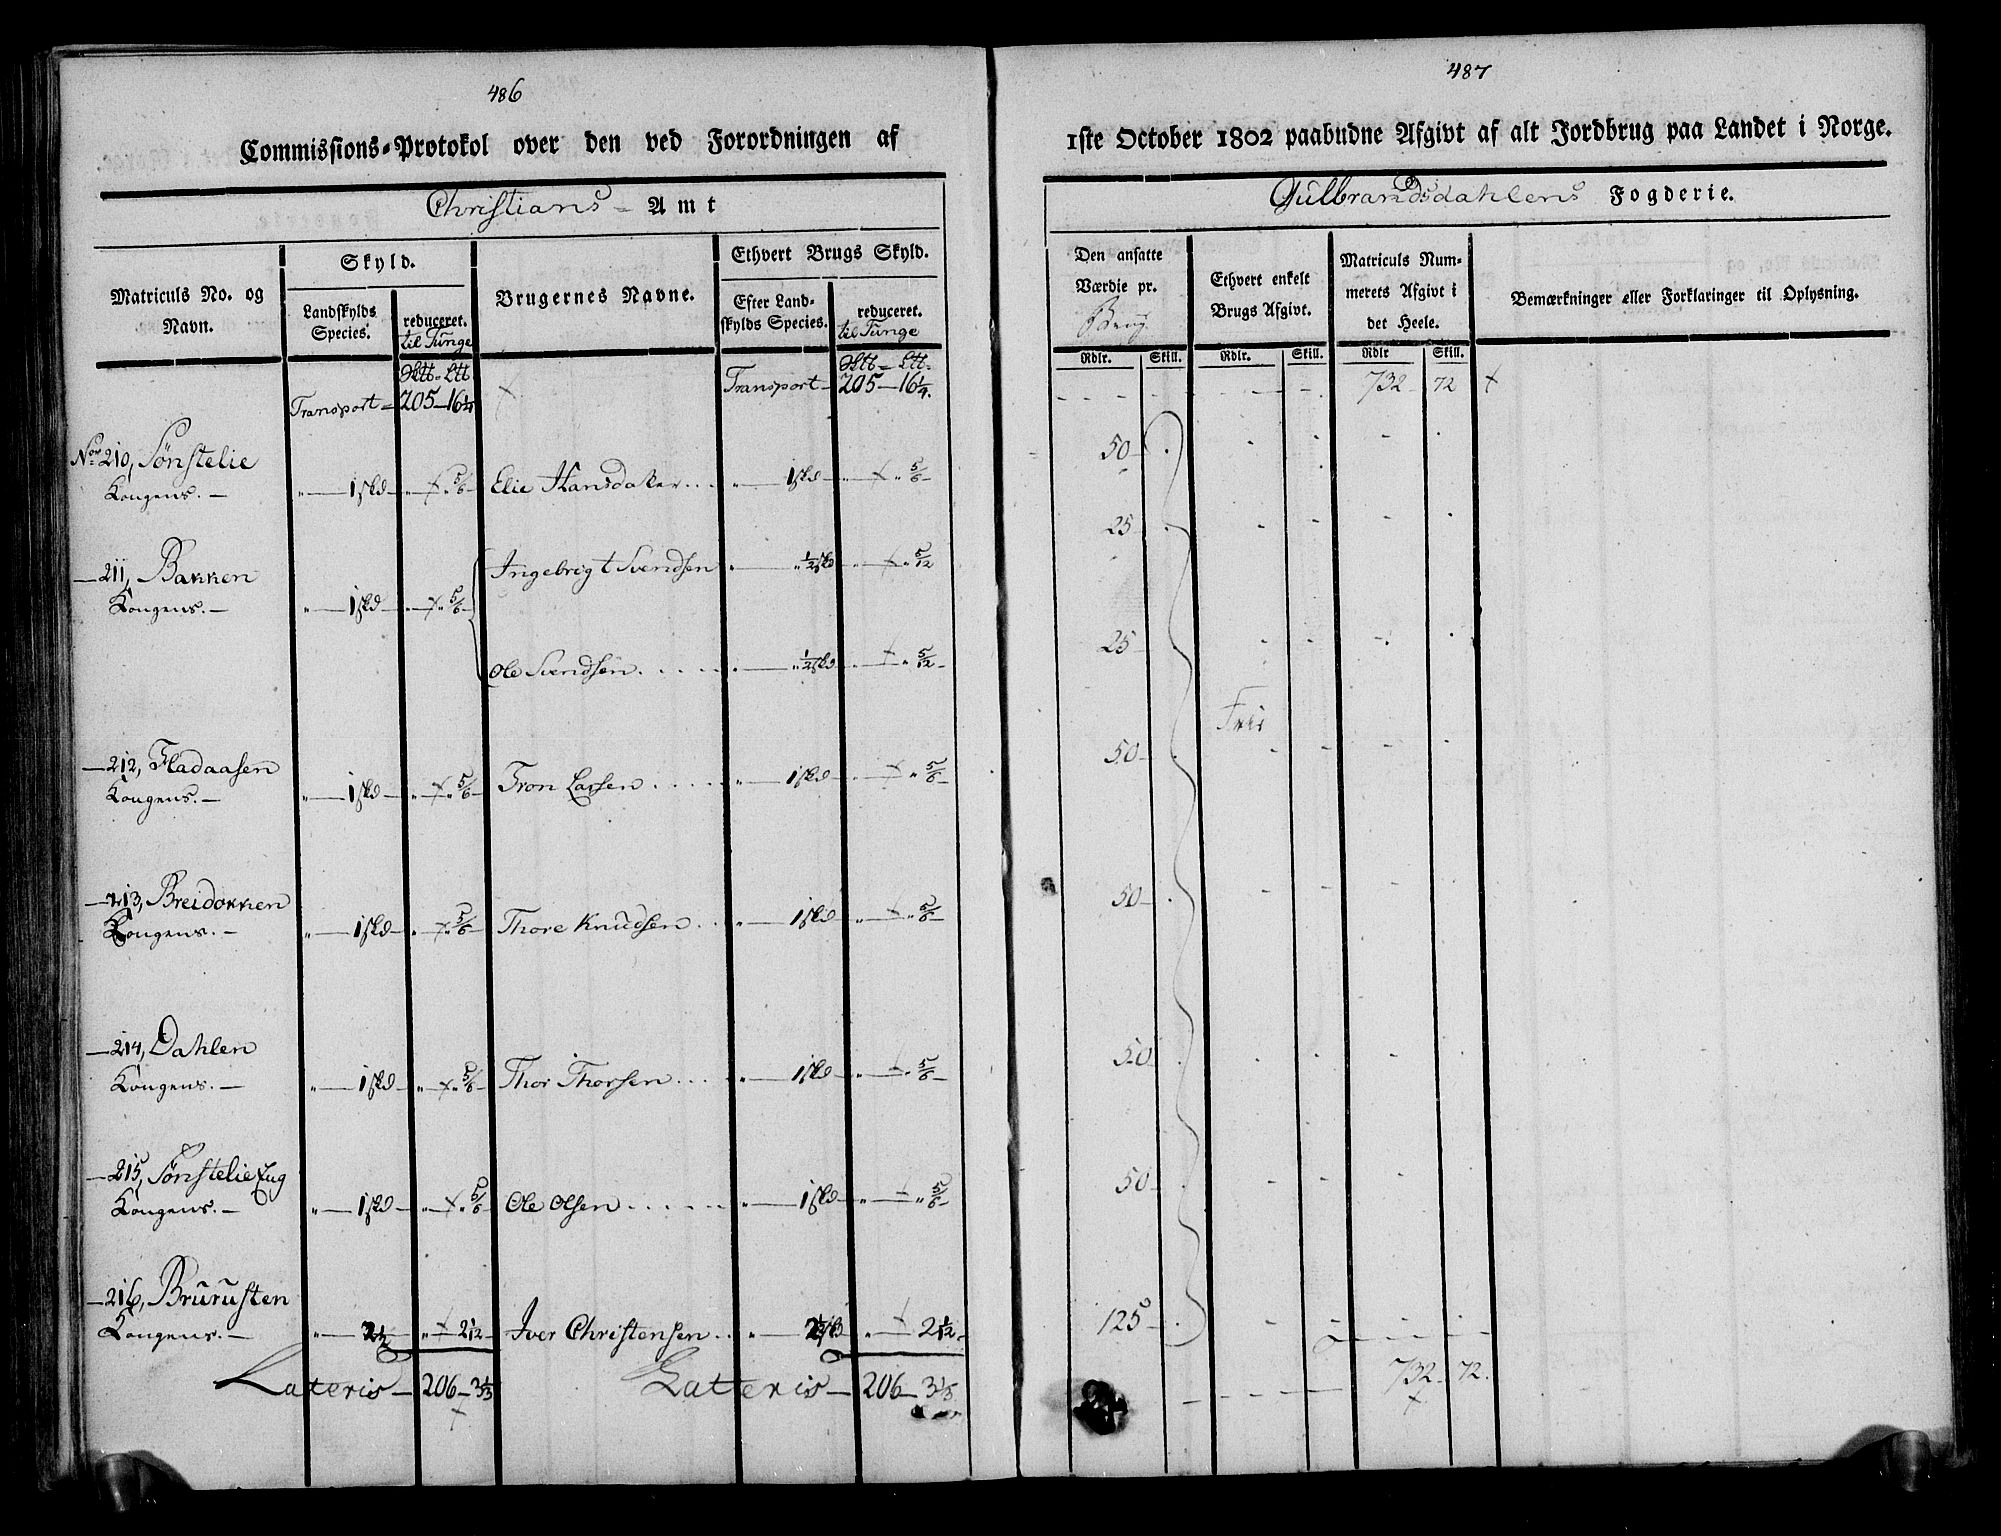 486
Commissions-Protokol over den ved Forordningen af
Christians- Amt
Matriculs No. og Navn.
Skyld.
Landskylds Species.
reduceret.
til Tunge
Brugernes Navne.
Ethvert Brugs Skyld.
Efter Landskylds Species.
reduceret.
til Tunge
Transport- 205-16¼ Transport- 205-16¼.
No 210, Sønstelie
Kongens.- " 1 skd " " 5/6 Elie Hansdatter... " 1 skd " " 5/6
211, Bakken Ingebrigt Svendsen " " ½ skd " " 5/12
Kongens.- " 1 skd " " 5/6
Ole Svendsen.... " " ½ skd " " 5/12
212, Fladaasen
Kongens.- " 1 skd " " 5/6 Tron Larsen.... " 1 skd " " 5/6
213, Breidokken
Kongens.- " 1 skd " " 5/6 Thore Knudsen.. " 1 skd " " 5/6
214, Dahlen
Kongens.- " 1 skd " " 5/6 Thor Thorsen... " 1 skd " " 5/6
215, Sønstelie Eng
Kongens.- " 1 skd " " 5/6 Ole Olsen..... " 1 skd " " 5/6
216, Brurusten
Kongens.- " 2½ " 2 1/12 Iver Christensen.. " 2½ " 2 1/12
Lateris- 206-3⅓ Lateris- 206-3⅓
487
1ste October 1802 paabudne Afgivt af alt Jordbrug paa Landet i Norge.
Gulbrandsdahlens Fogderie.
Den ansatte Værdie pr.
Brug
Ethvert enkelt Brugs Afgivt.
Matriculs Nummerets Afgivt i det Heele.
Bemærkninger eller Forklaringer til Oplysning.
Rdlr. Skill. Rdlr. Skill. Rdlr Skill.
732 72
50
25
25
Frie
50
50
50
50
125
732 72.